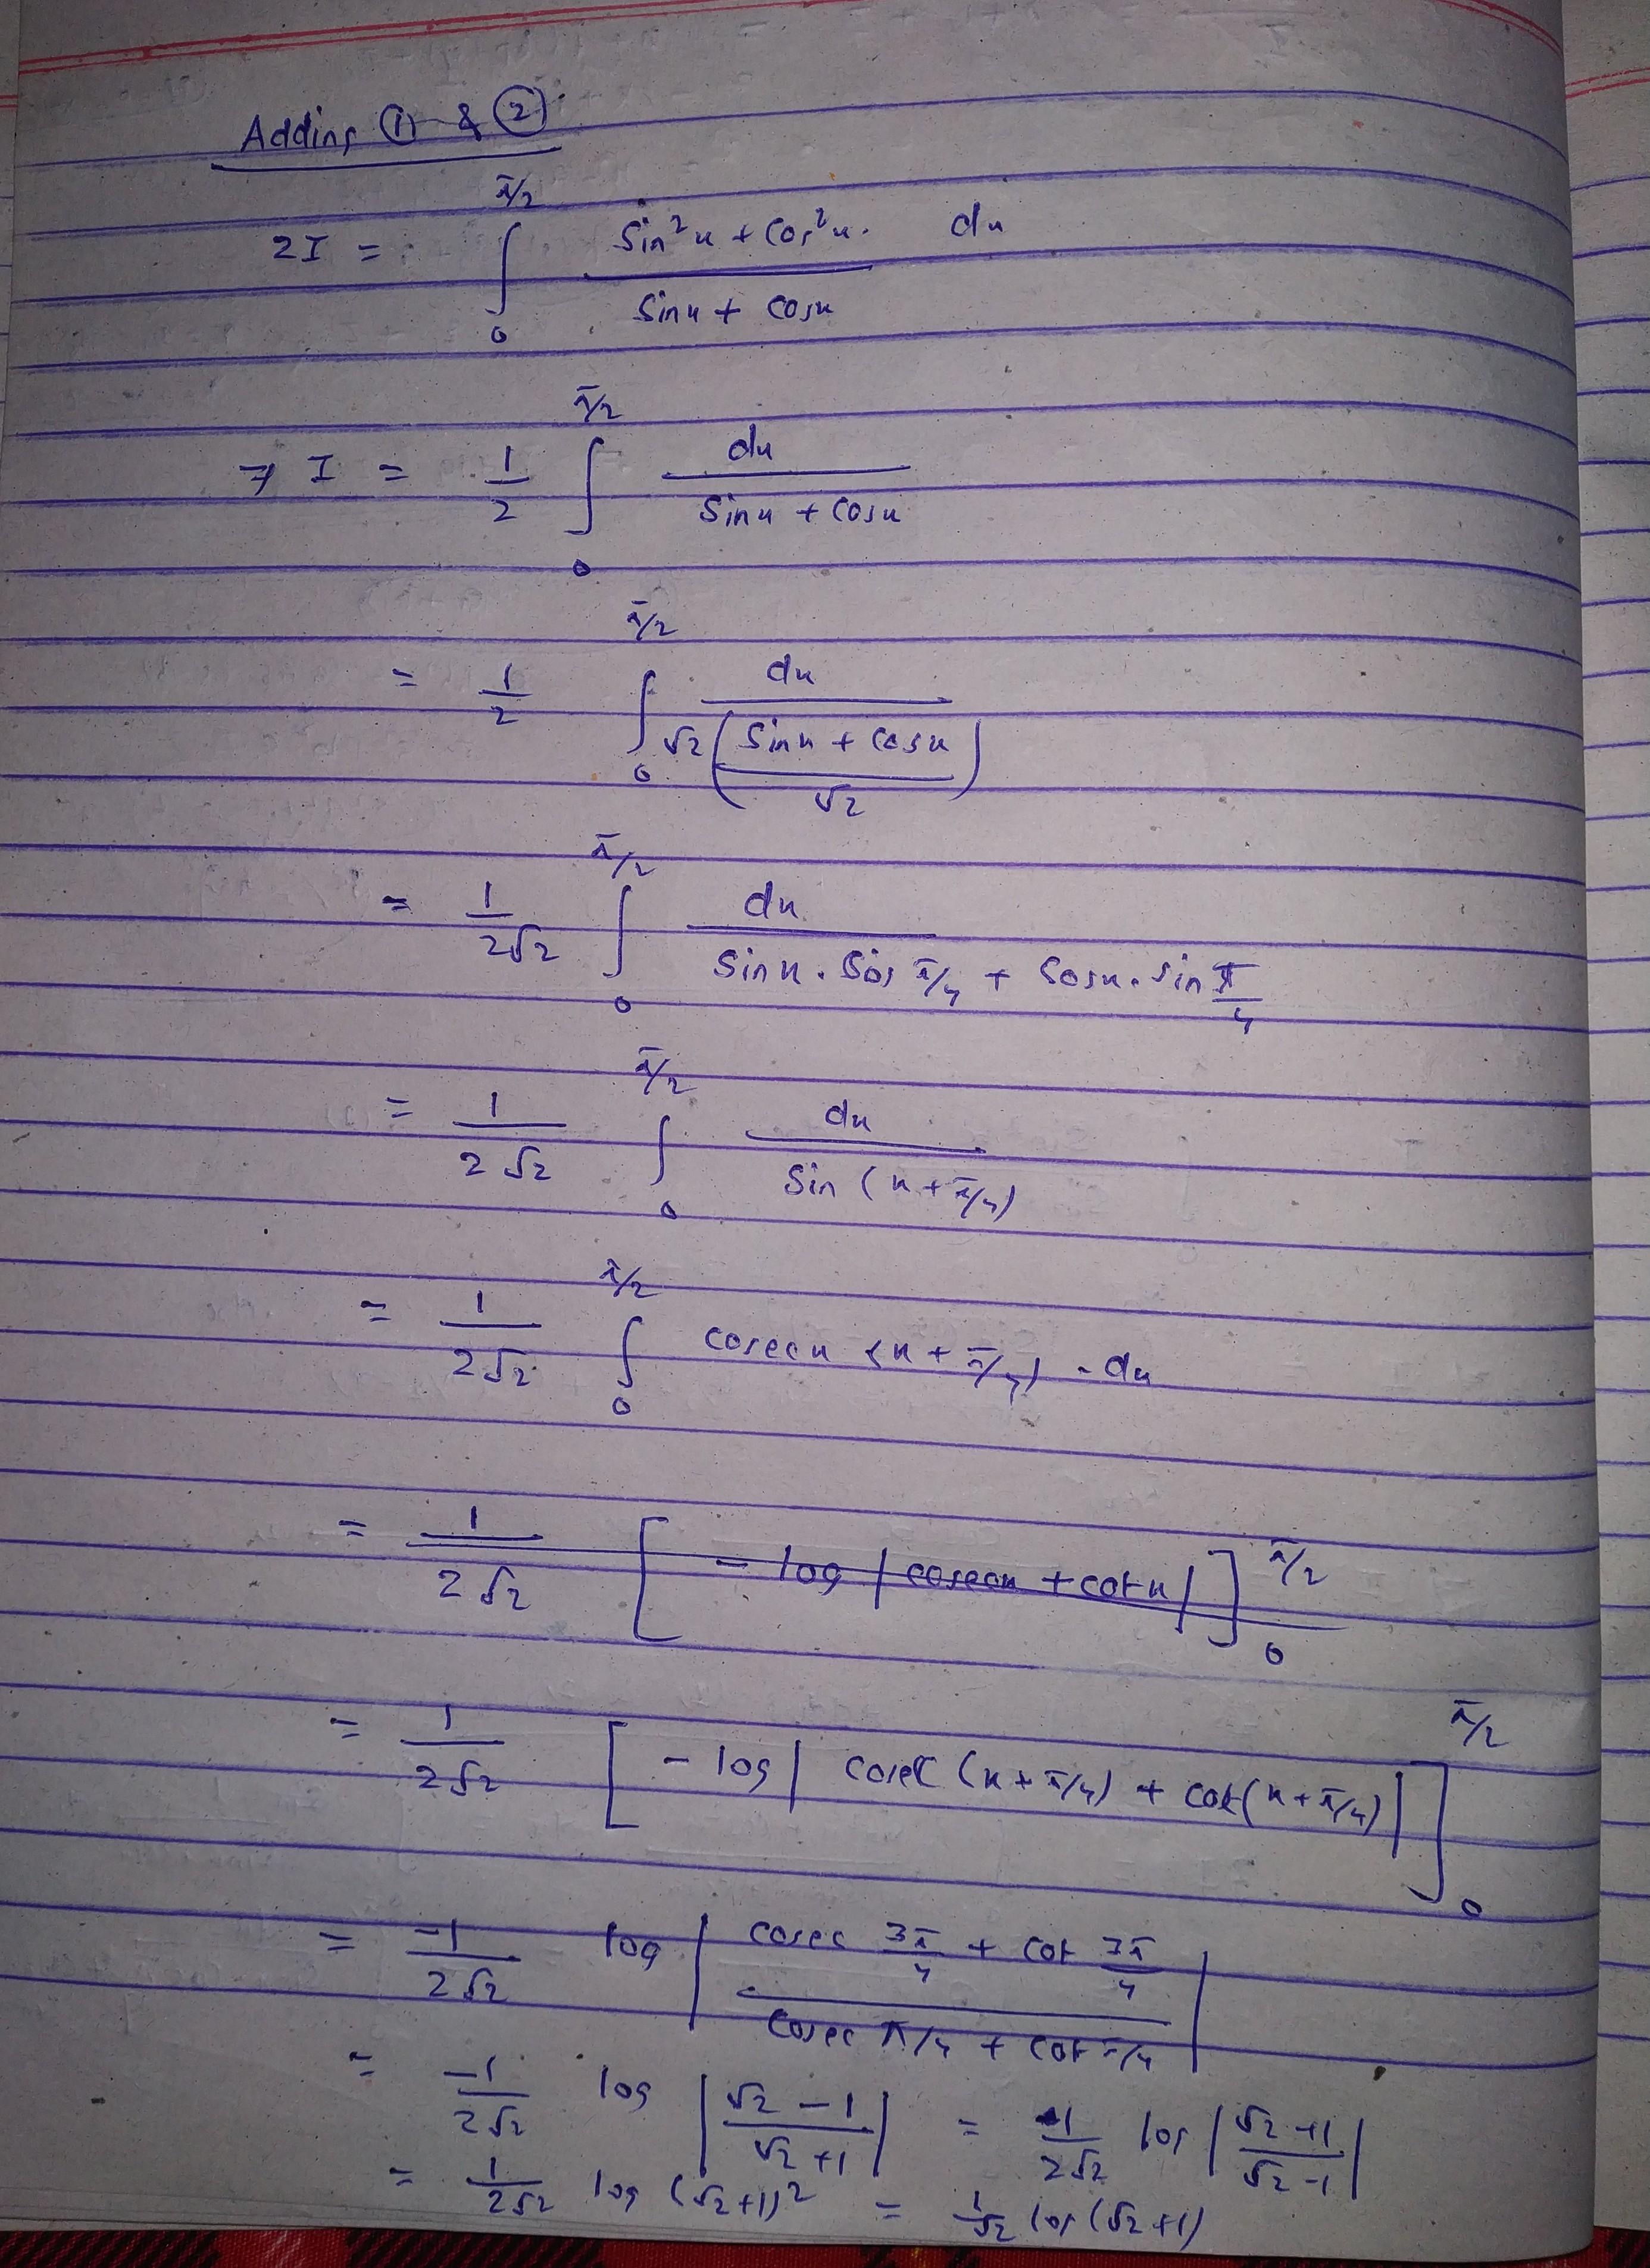 Adding ① & ②
2I = ∫₀^{π/2} (sin²x + cos²x)/(sinx + cosx) dx
⇒ I = 1/2 ∫₀^{π/2} dx/(sinx + cosx)
= 1/2 ∫₀^{π/2} dx/(√2((sinx + cosx)/√2))
= 1/(2√2) ∫₀^{π/2} dx/(sinx . cos π/4 + cosx . sin π/4)
= 1/(2√2) ∫₀^{π/2} dx/(sin (x + π/4))
= 1/(2√2) ∫₀^{π/2} cosecx (x + π/4) . dx
= 1/(2√2) [- log |cosecx + cotx|]₀^{π/2}
= 1/(2√2) [- log | cosec (x + π/4) + cot (x + π/4)|]₀^{π/2}
= -1/(2√2) log |(cosec 3π/4 + cot 3π/4)/(cosec π/4 + cot π/4)|
= -1/(2√2) log |(√2 - 1)/(√2 + 1)| = 1/(2√2) log |(√2 + 1)/(√2 - 1)|
= 1/(2√2) log (√2 + 1)² = 1/√2 log (√2 + 1)